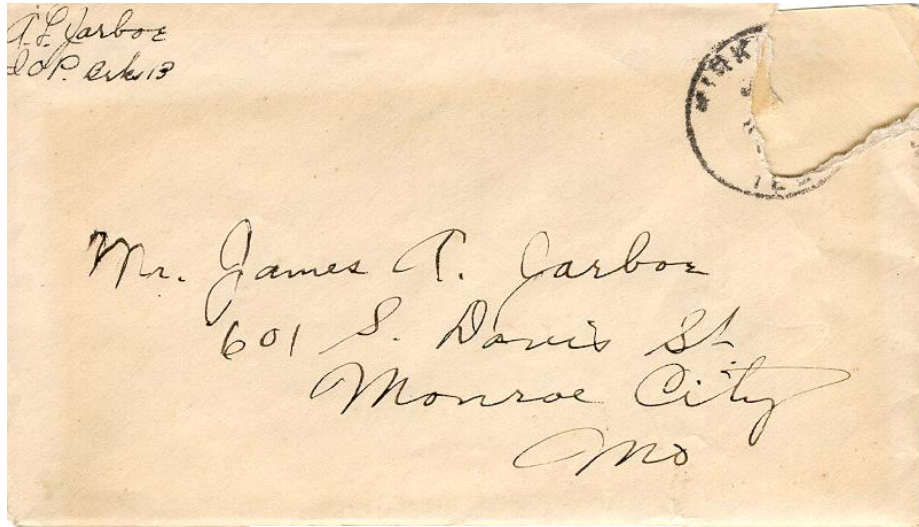 A. L. Jarboe
Mr. James A. Jarboe
601 S. Davis St
Monroe City
Mo